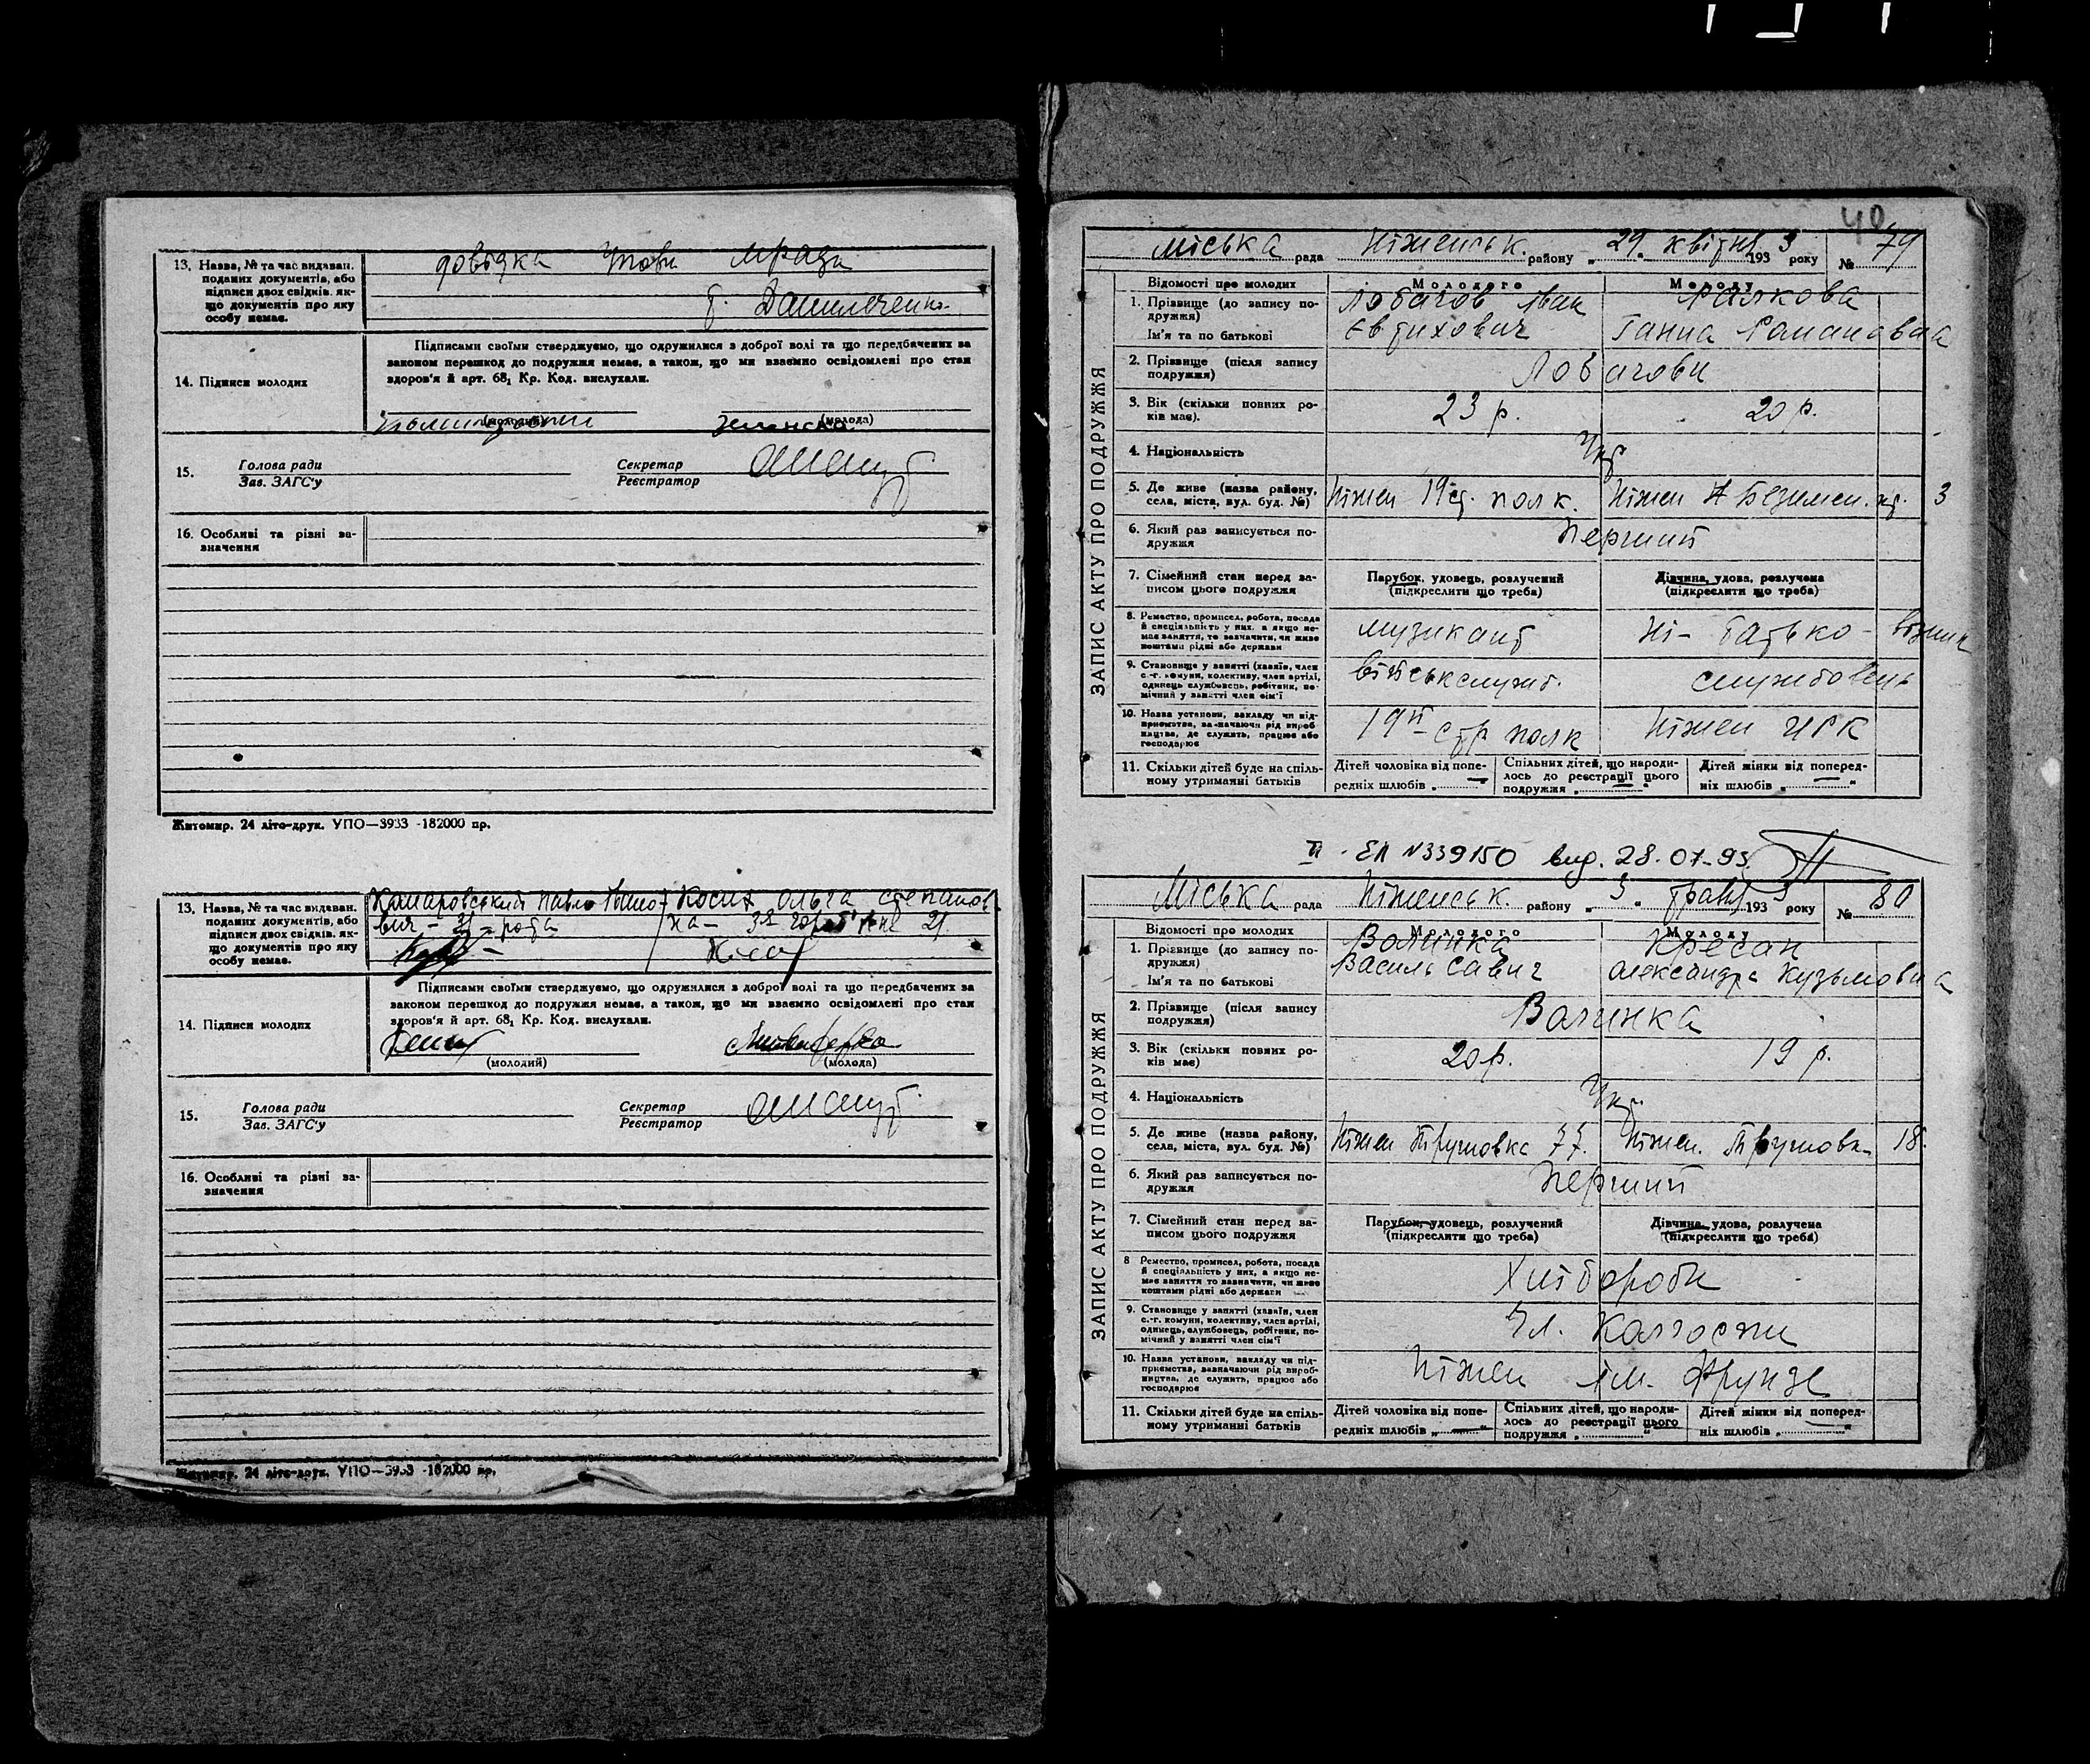 13. Назва, № та час видаван. поданих документів, або підписи двох свідків. якщо документів про яку особу немає.
довідка
14. Підписи молодих
Підписами своїми стверджуємо, що одружилися з доброї волі та що передбачених за
законом перешкод до подружжя немає, а також, що ми взаємно освідомлені про стан
здоров'я й арт. 68₁ Кр. Код. вислухали.
(молодий) (молода)
15. Голова ради
Зав. ЗАГС'у
Секретар
Реєстратор
16. Особливі та різні зазначення
Житомир. 24 літо-друк. УПО—3933 -182000 пр.
13. Назва, № та час видаван. поданих документів, або підписи двох свідків. якщо документів про яку особу немає.
Комаровський Павло
Косих Ольга Степанов
14. Підписи молодих
Підписами своїми стверджуємо, що одружилися з доброї волі та що передбачених за
законом перешкод до подружжя немає, а також, що ми взаємно освідомлені про стан
здоров'я й арт. 68₁ Кр. Код. вислухали.
(молодий) (молода)
15. Голова ради
Зав. ЗАГС'у
Секретар
Реєстратор
16. Особливі та різні зазначення
Житомир. 24 літо-друк. УПО—3933 -182000 пр.
40
ЗАПИС АКТУ ПРО ПОДРУЖЖЯ
Міська рада Ніженськ. району „29„ квітня 1933 року № 79
Відомості про молодих Молодого Молоду
1. Прізвище (до запису подружжя)
Ім'я та по батькові
Лобачов Іван
Євтихович
Ганна Романовна
2. Прізвище (після запису подружжя) Лобачови
3. Вік (скільки повних років має). 23 р. 20 р.
4. Національність Укр
5. Де живе (назва району, села, міста, вул. буд. №) Ніжен 19 ст. полк. Ніжен 3
6. Який раз записується подружжя Перший
7. Сімейний стан перед записом цього подружжя
Парубок, удовець, розлучений
(підкреслити що треба)
Дівчина, удова, розлучена
(підкреслити що треба)
8. Ремество, промисел, робота, посада й спеціяльність у них, а якщо немає заняття, то зазначити, чи живе коштами рідні або держави
музикант Ні- батько - візник
9. Становище у занятті (хазяїн, член с.-г. комуни, колективу, член артілі, одинець службовець, робітник, помічний у занятті член сім'ї
військслужб. службовець
10. Назва установи, закладу чи підприємства, зазначаючи рід виробництва, де служить, працює або господарює
19й стр полк Ніжен
11. Скільки дітей буде на спільному утриманні батьків
Дітей чоловіка від попередніх шлюбів „—“
Спільних дітей, що народилось до реєстрації цього подружжя „—“
Дітей жінки від попередніх шлюбів „—“
ІІ - ЕЛ №339150 вид. 28.07-93
ЗАПИС АКТУ ПРО ПОДРУЖЖЯ
Міська рада Ніженськ. району „3„ травня 1933 року № 80
Відомості про молодих Молодого Молоду
1. Прізвище (до запису подружжя)
Ім'я та по батькові
Волинка
Василь Савич
Кресан
Олександра Кузьмовна
2. Прізвище (після запису подружжя) Волинка
3. Вік (скільки повних років має) 20 р. 19 р.
4. Національність Укр.
5. Де живе (назва району, села, міста, вул. буд. №) Ніжен 77. Ніжен. 18.
6. Який раз записується подружжя Перший
7. Сімейний стан перед записом цього подружжя
Парубок, удовець, розлучений
(підкреслити що треба)
Дівчина, удова, розлучена
(підкреслити що треба)
8 Ремество, промисел, робота, посада й спеціяльність у них, а якщо немає заняття то зазначити, чи живе коштами рідні або держави
Хлібороби
9. Становище у занятті (хазяїн, член с.-г. комуни, колективу, член артілі, одинець, службовець, робітник, помічний у занятті член сім'ї
Чл. Колгоспи
10. Назва установи, закладу чи підприємства, зазначаючи рід виробництва, де служить, працює або господарює
Ніжен ім. Фрунзе
11. Скільки дітей буде на спільному утриманні батьків
Дітей чоловіка від попередніх шлюбів „—“
Спільних дітей, що народилось до реєстрації цього подружжя „“
Дітей жінки від попередніх шлюбів „—“